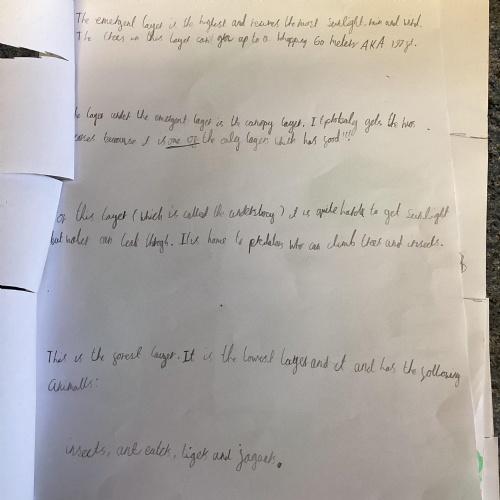 The emergent layer is the highest and recives the most sunlight, rain and wind.
The trees in this layer can grow up to a whopping 60 meters AKA 197ft.
he layer under the emergent layer is the canopy layer. It probably gets the
because it is one of the only layers which has food!!!
of this layer (which is called the understory) it is quite harder to get sunlight
but water can leak through. It is home to predators who can climb trees and insects.
This is the forest layer. It is the lowest layer and it and has the following
animals:
insects, ant eater, tiger and jaguar.